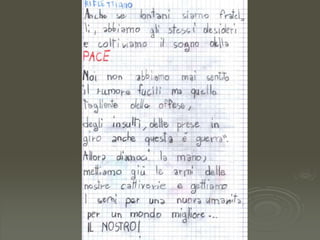 RIFLETTIAMO
Anche se lontani siamo fratel
li, abbiamo gli stessi desideri
e coltiviamo il sogno della
PACE
Noi non abbiamo mai sentito
il rumore fucili ma quello
tagliente delle offese,
degli insulti, delle prese in
giro anche questa è guerra".
Allora diamoci la mano,
mettiamo giù le armi delle
nostre cattiverie e gettiamo
i semi per una nuova umanità
per un mondo migliore...
IL NOSTRO!